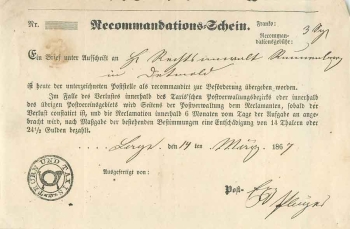 Nr.
Recommandations-Schein.
Franko:
Recommandationsgebühr:
3 Sgr
Ein Brief unter Aufschrift an H Rechtsanwalt Runnenberg
in Detmold
ist heute der unterzeichneten Poststelle als recommandirt zur Beförderung übergeben worden.
Im Falle des Verlustes innerhalb des Taxis'schen Postverwaltungsbezirks oder innerhalb
des übrigen Postvereinsgebiets wird Seitens der Postverwaltung dem Reclamanten, sobald der
Verlust constatirt ist, und die Reklamation innerhalb 6 Monaten vom Tage der Aufgabe an
angebracht wird, nach Maßgabe der bestehenden Bestimmungen eine Entschädigung von 14 Thalern oder
24½ Gulden bezahlt.
Lage den 14 ten März 1867
Ausgefertigt von:
Post-
THURN UND TAXIS